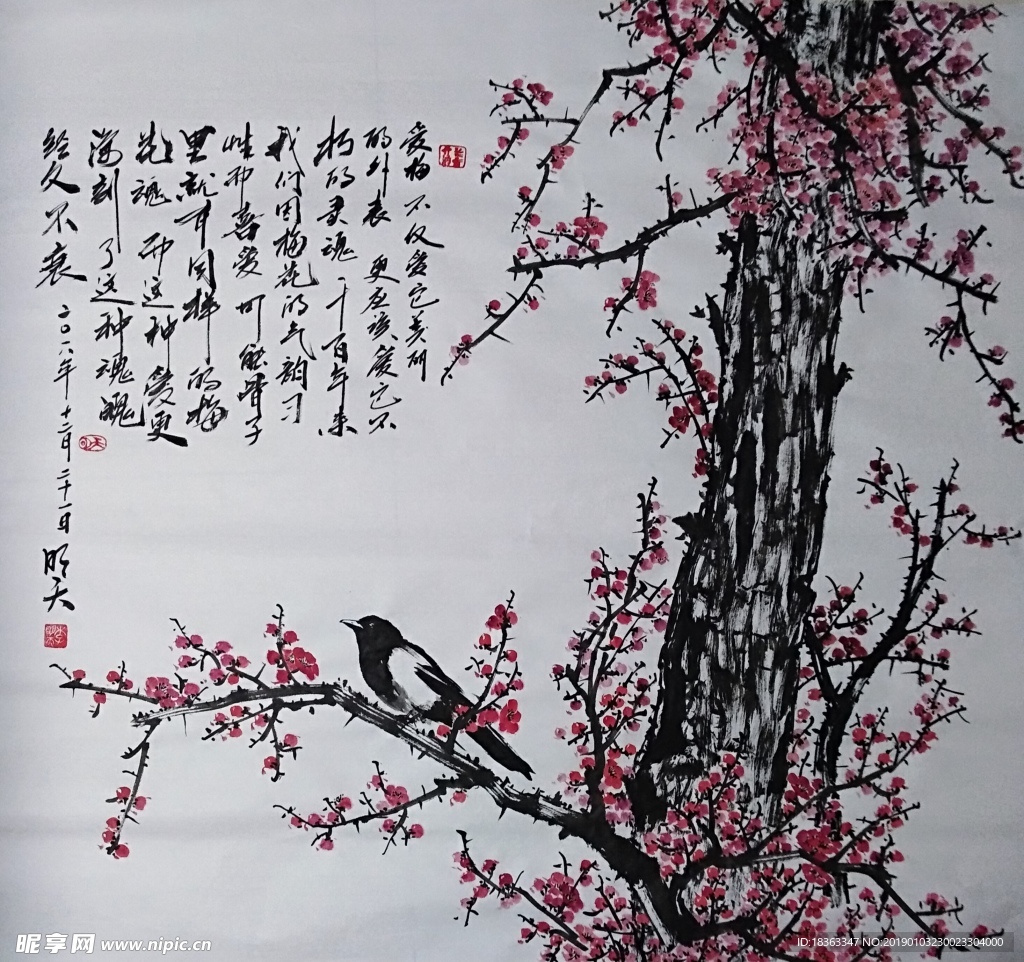 爱梅不仅爱它美丽
的外表 更应该爱它不
朽的灵魂 千百年来
我们因梅花的气韵习
性而喜爱 可能骨子
里就有同样的梅
花魂 而这种爱更
深刻了这种魂魄
经久不衰
二〇一八年十二月二十一日 明天
昵享网 www.nipic.cn
ID:18363347 NO:20190103230023304000